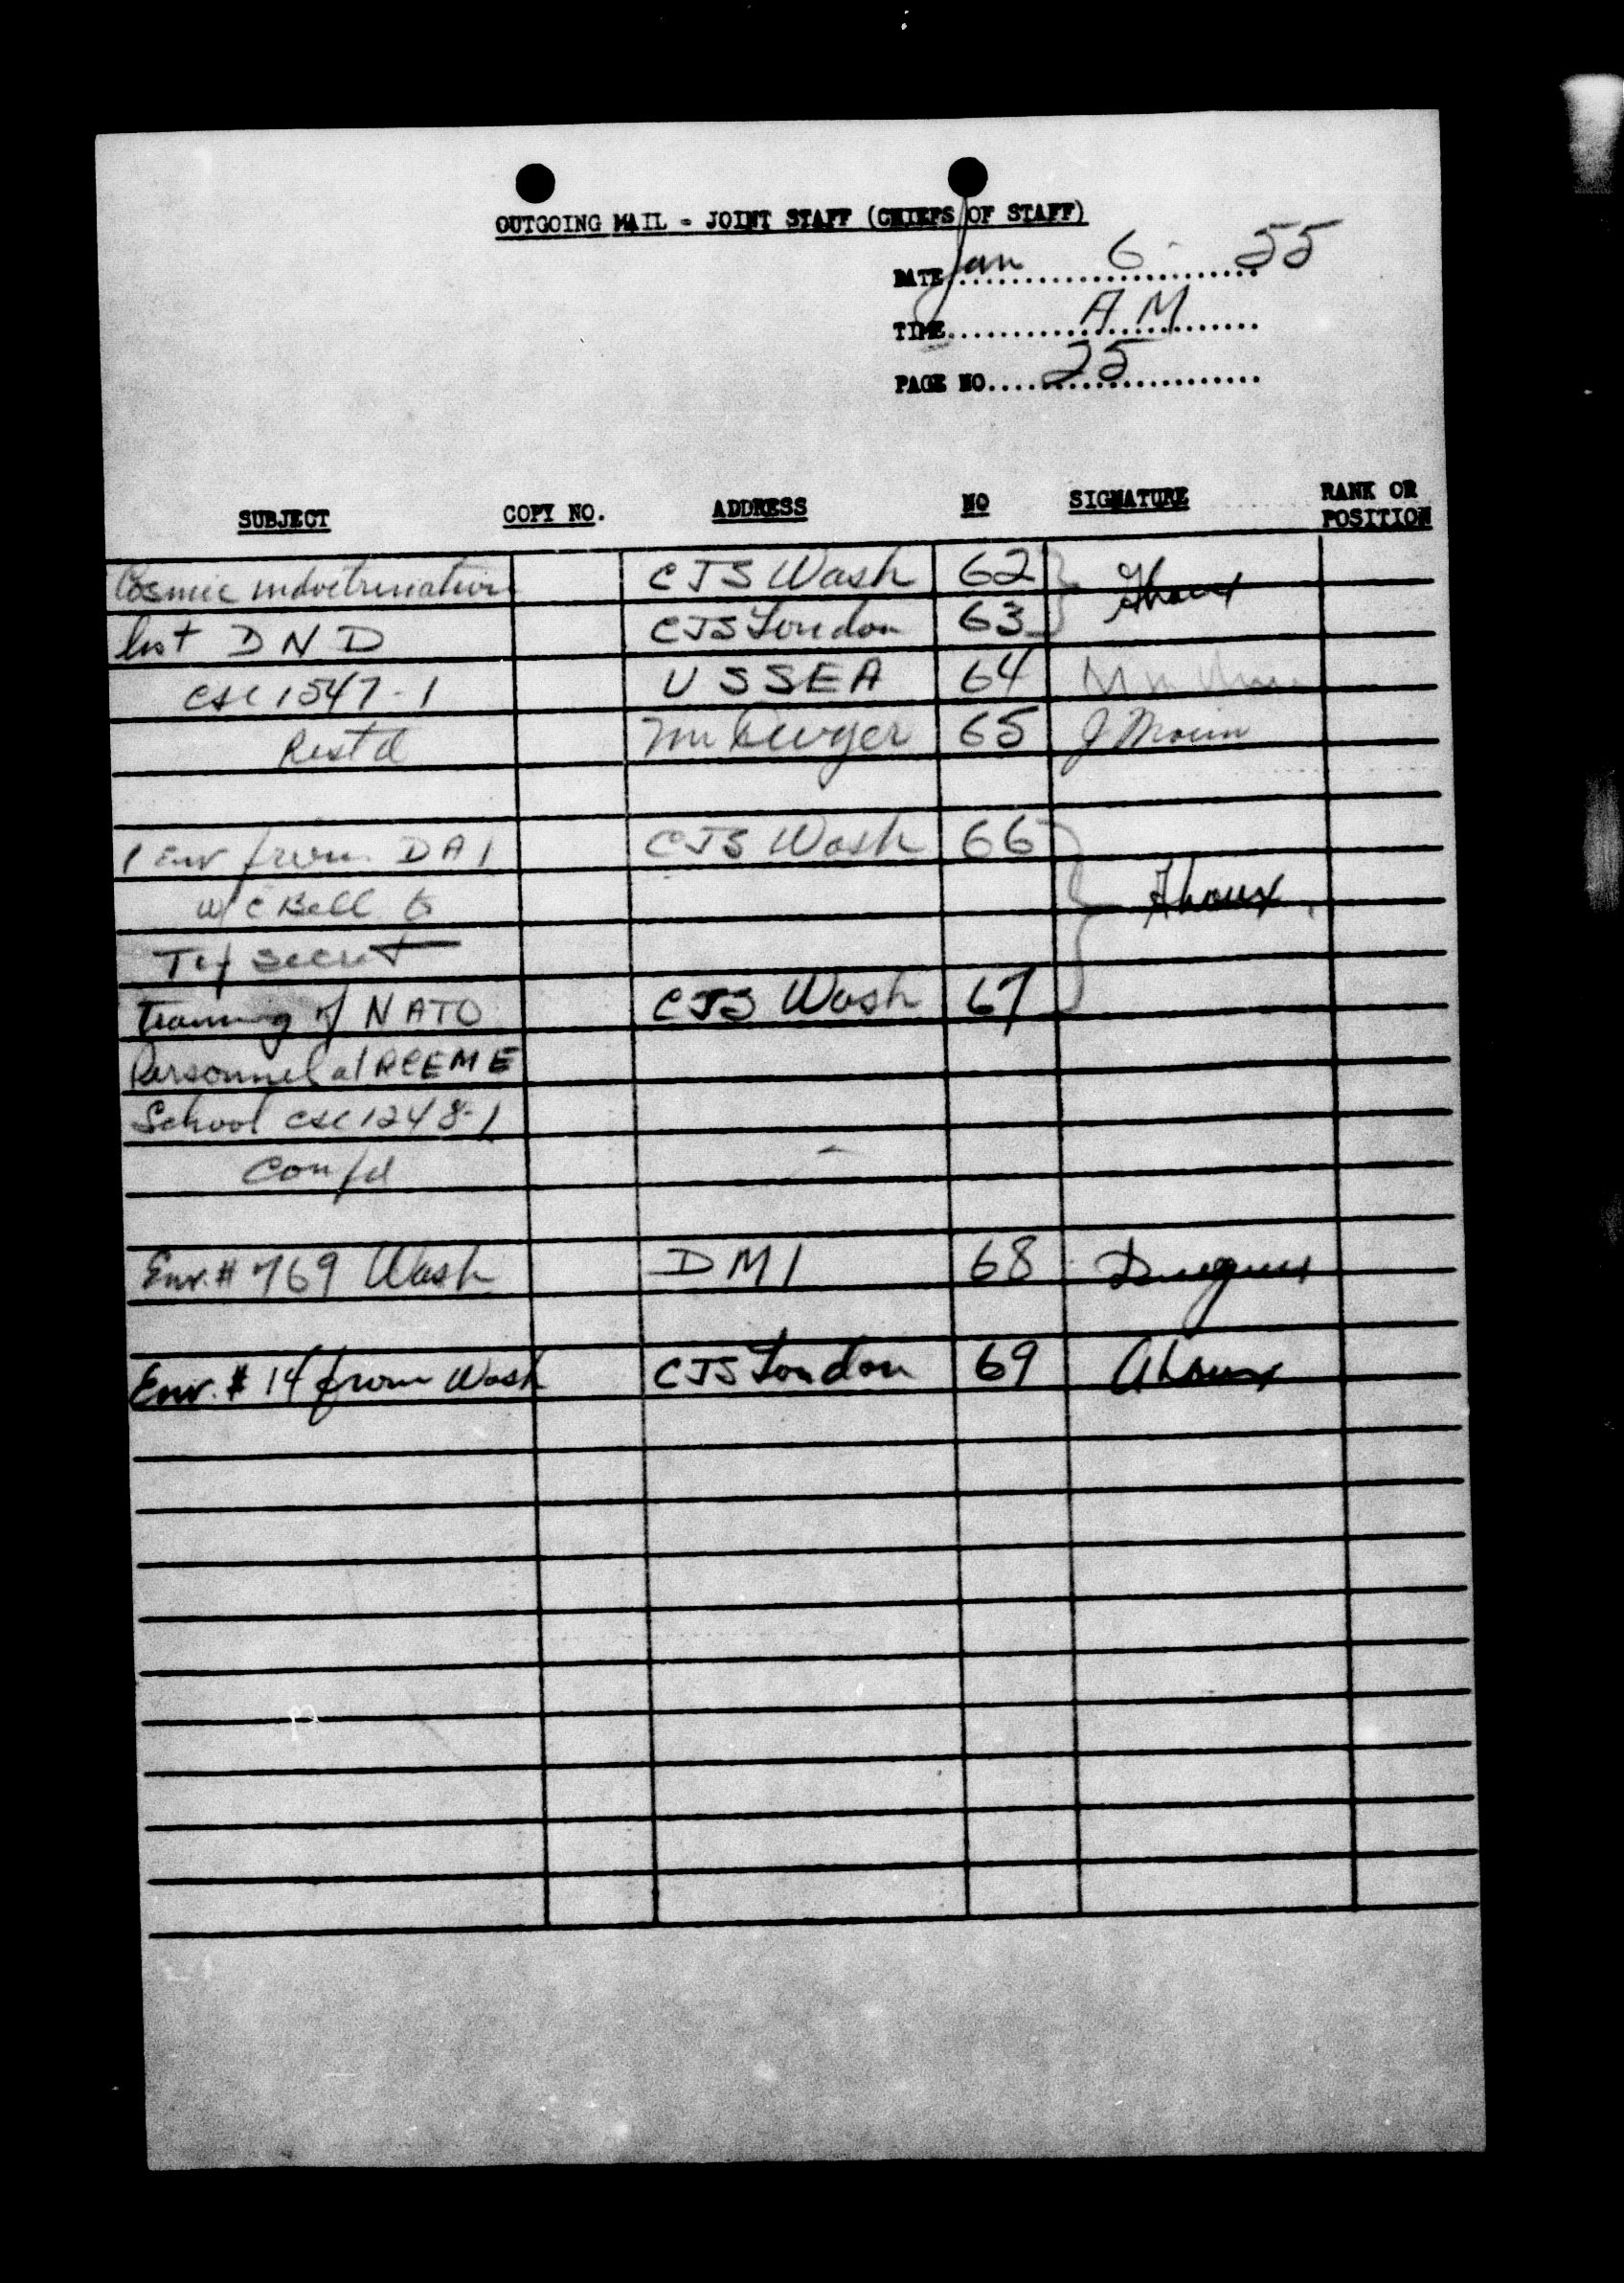 OUTGOING MAIL - JOINT STAFF (CHIEFS OF STAFF)
DATE Jan 6 55
TIME AM
PAGE NO. 25
SUBJECT COPY NO. ADDRESS NO SIGNATURE RANK OR POSITION
Cosmic indoctrination CJS Wash 62
list DND CJS London 63
csc 1547-1 USSEA 64
Restd 65 J Morin
1 Env from DAI CJS Wash 66
w/c Bell to
Top Secret
Training of NATO CJS Wash 67
Personnel at RCEME
School csc 1248-1
Confd
Env. # 769 Wash DMI 68
Env. # 14 from Wash CJS London 69